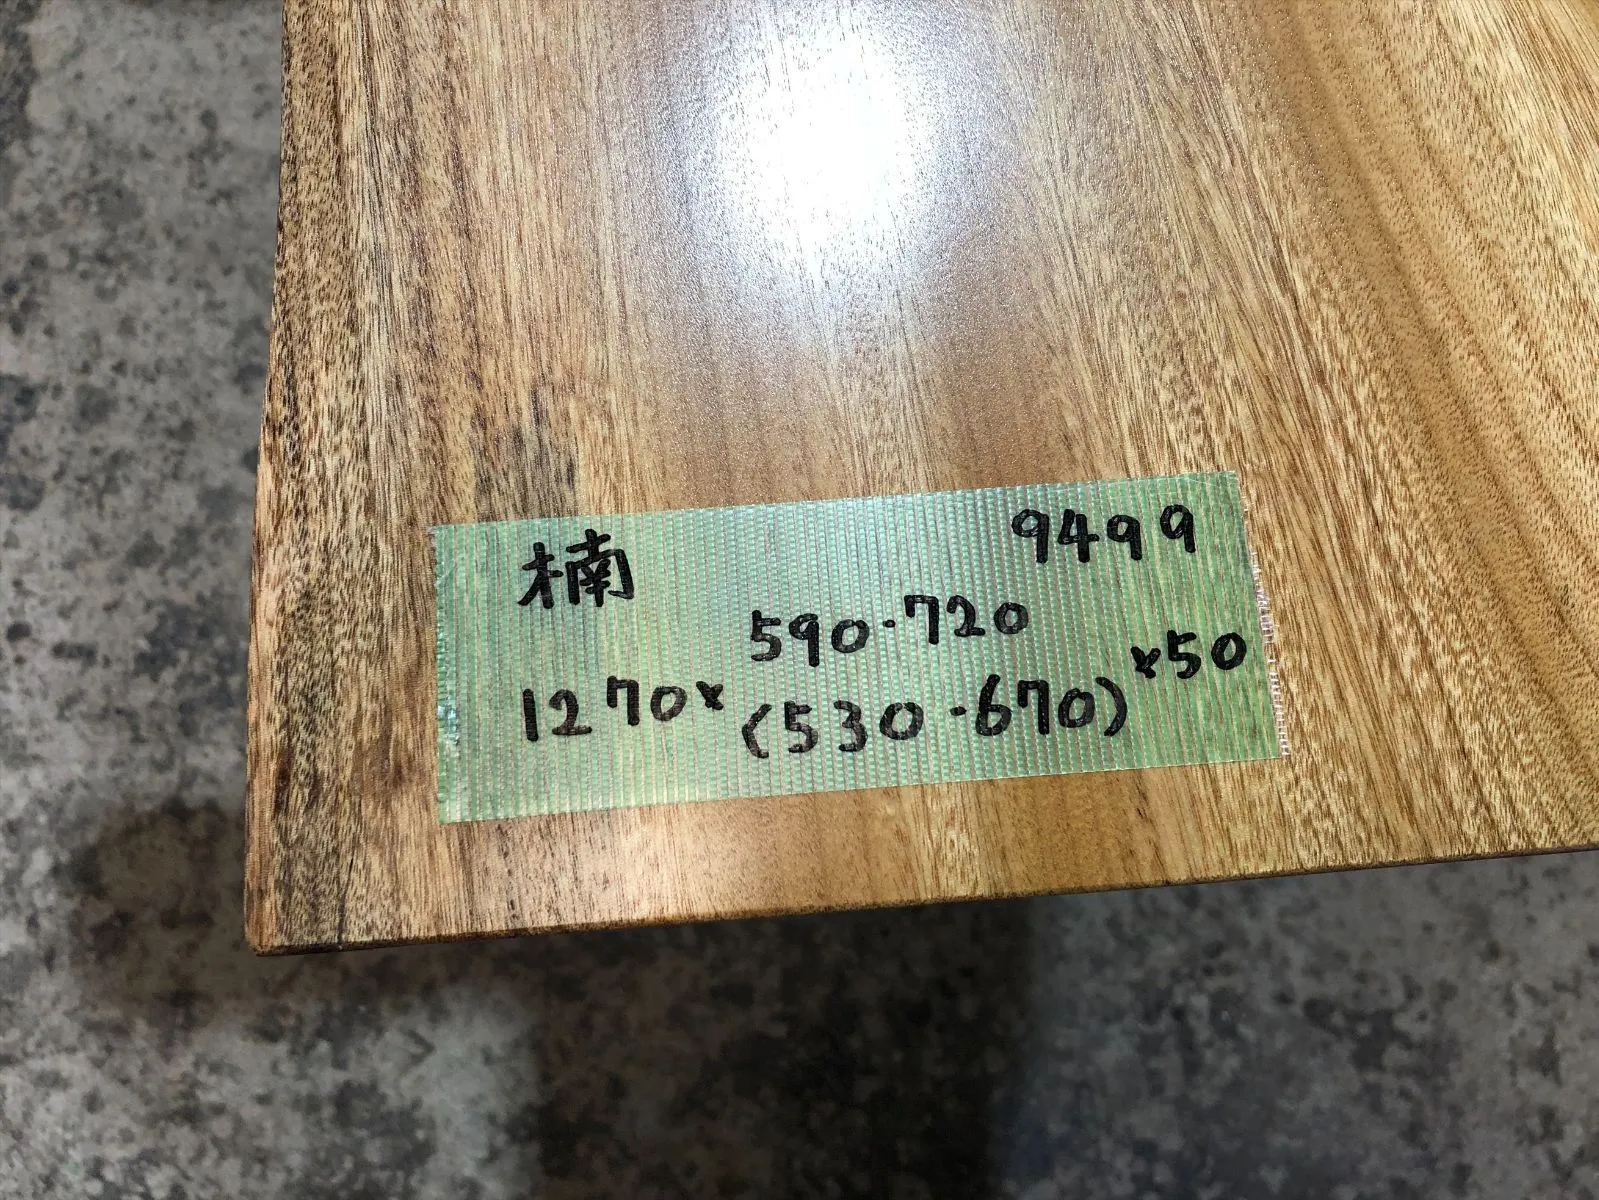 楠 9499
590・720
1270×(530・670)×50